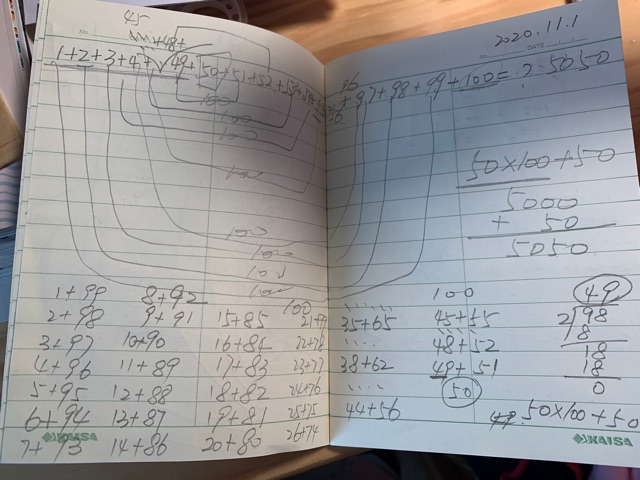 45
2020.11.1
NO.
NO.
DATE
1+2+3+4+ 49+ 50+51+52+53+ 96+97+98+99+100=? 5050
100
100
100
100
100
100
100
100
50×100+50
5000
+ 50
5050
1+99 8+92 100 100 49
2+98 9+91 15+85 35+65 45+55 2 98
3+97 10+90 16+84 22+78 48+52 18
4+96 11+89 17+83 23+77 38+62 49+51 18
5+95 12+88 18+82 24+76 50 0
6+94 13+87 19+81 25+75 44+56 50×100+50
7+93 14+86 20+80 26+74
KAISA KAISA